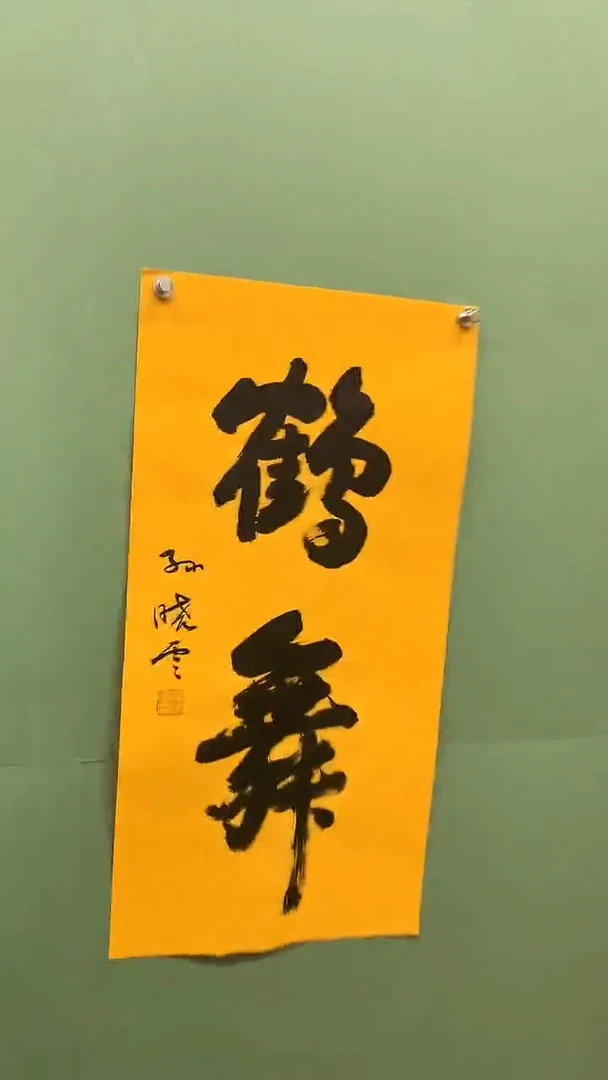 鶴舞
孙晓云